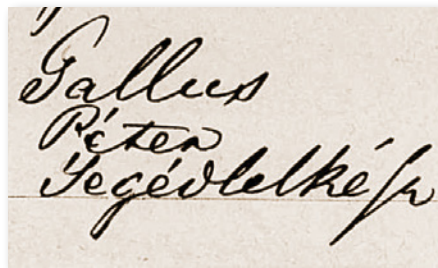 Gallus
Péter
Segédlelkész